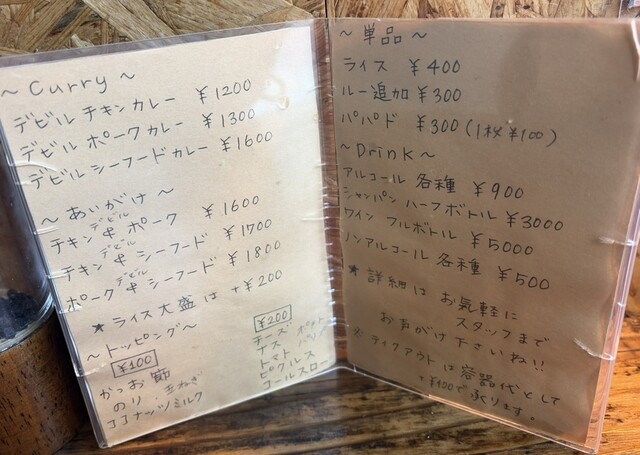 ～ Curry ～
デビル チキンカレー ￥1200
デビル ポークカレー ￥1300
デビル シーフードカレー ￥1600
～ あいがけ ～
チキン & デビル ポーク ￥1600
チキン & デビル シーフード ￥1700
ポーク & デビル シーフード ￥1800
★ ライス大盛は +￥200
～ トッピング ～
￥100
かつお節
のり 玉ねぎ
ココナッツミルク
￥200
チーズ ポテト
ナス
トマト
ピクルス
コールスロー
～ 単品 ～
ライス ￥400
ルー追加 ￥300
パパド ￥300 (1枚￥100)
～ Drink ～
アルコール 各種 ￥900
シャンパン ハーフボトル ￥3000
ワイン フルボトル ￥5000
ノンアルコール 各種 ￥500
★ 詳細は お気軽に
スタッフまで
お声がけ下さいね!!
※ テイクアウトは容器代として
+￥100で承ります。